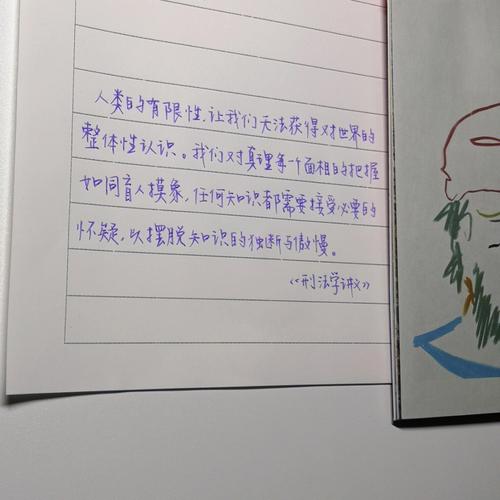 人类的有限性,让我们无法获得对世界的
整体性认识。我们对真理每一个面相的把握
如同盲人摸象,任何知识都需要接受必要的
怀疑,以摆脱知识的独断与傲慢。
《刑法学讲义》